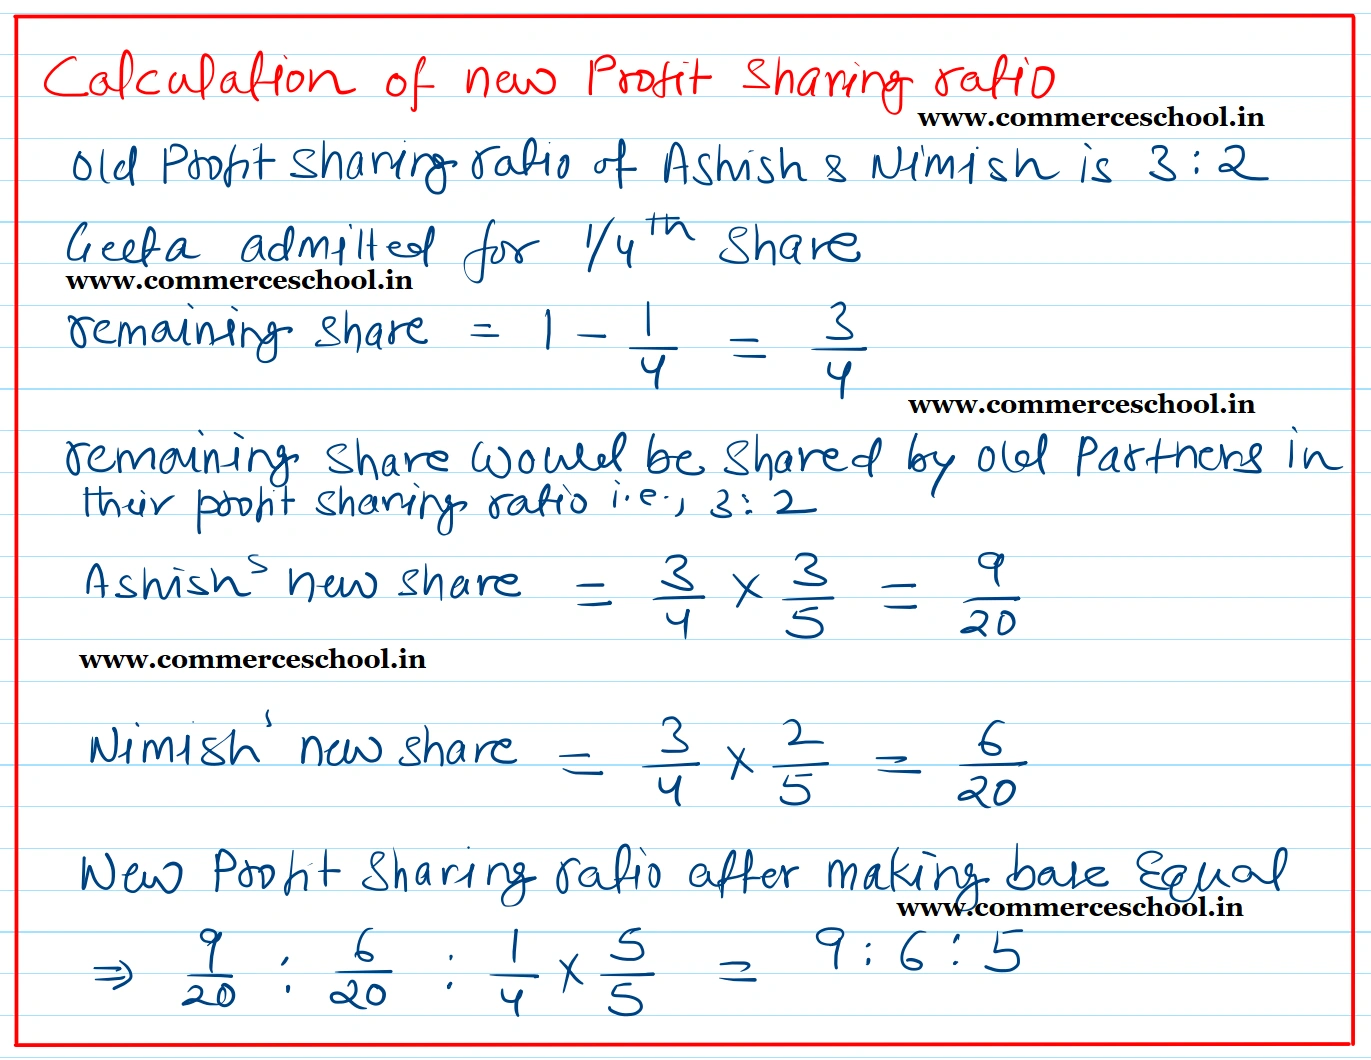 Calculation of new Profit Sharing ratio
www.commerceschool.in
Old Profit Sharing ratio of Ashish & Nimish is 3 : 2
Geeta admitted for 1/4th Share
www.commerceschool.in
remaining share = 1 - 1/4 = 3/4
www.commerceschool.in
remaining share would be shared by old Partners in
their profit sharing ratio i.e., 3 : 2
Ashish's new share = 3/4 × 3/5 = 9/20
www.commerceschool.in
Nimish' new share = 3/4 × 2/5 = 6/20
New Profit Sharing ratio after making base Equal
www.commerceschool.in
⇒ 9/20 : 6/20 : 1/4 × 5/5 = 9 : 6 : 5